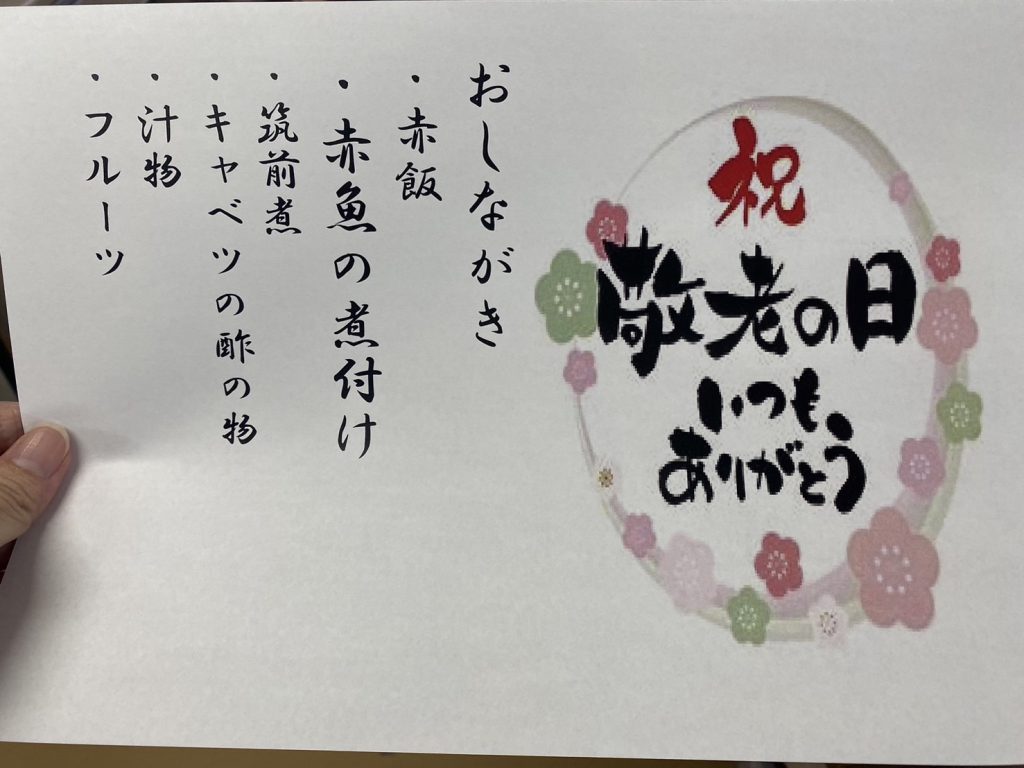 祝
敬老の日
いつも
ありがとう
おしながき
・赤飯
・赤魚の煮付け
・筑前煮
・キャベツの酢の物
・汁物
・フルーツ